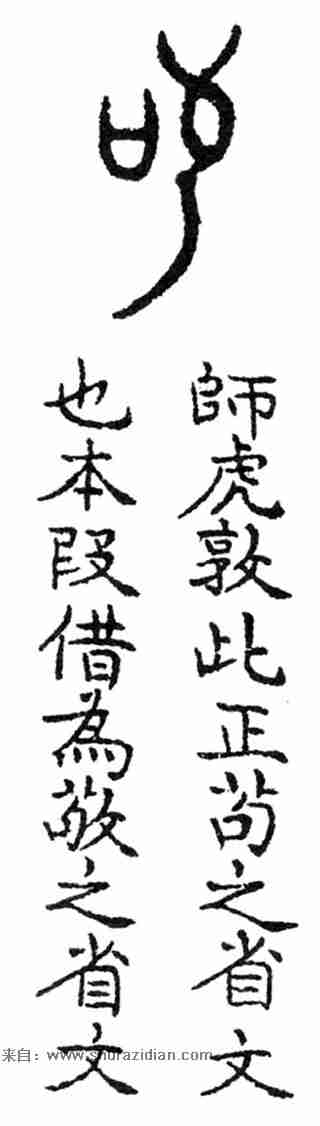 師虎敦此正茍之省文
也本段借為敬之省文
来自：www.shufazidian.com